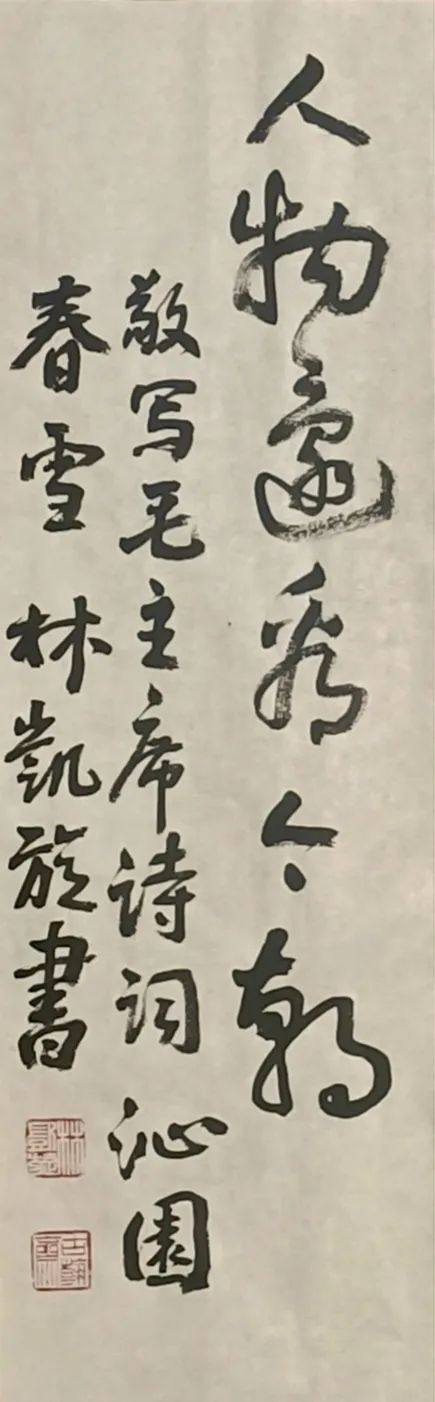 人物還看今朝
敬写毛主席诗词沁園
春雪 林凱旋書